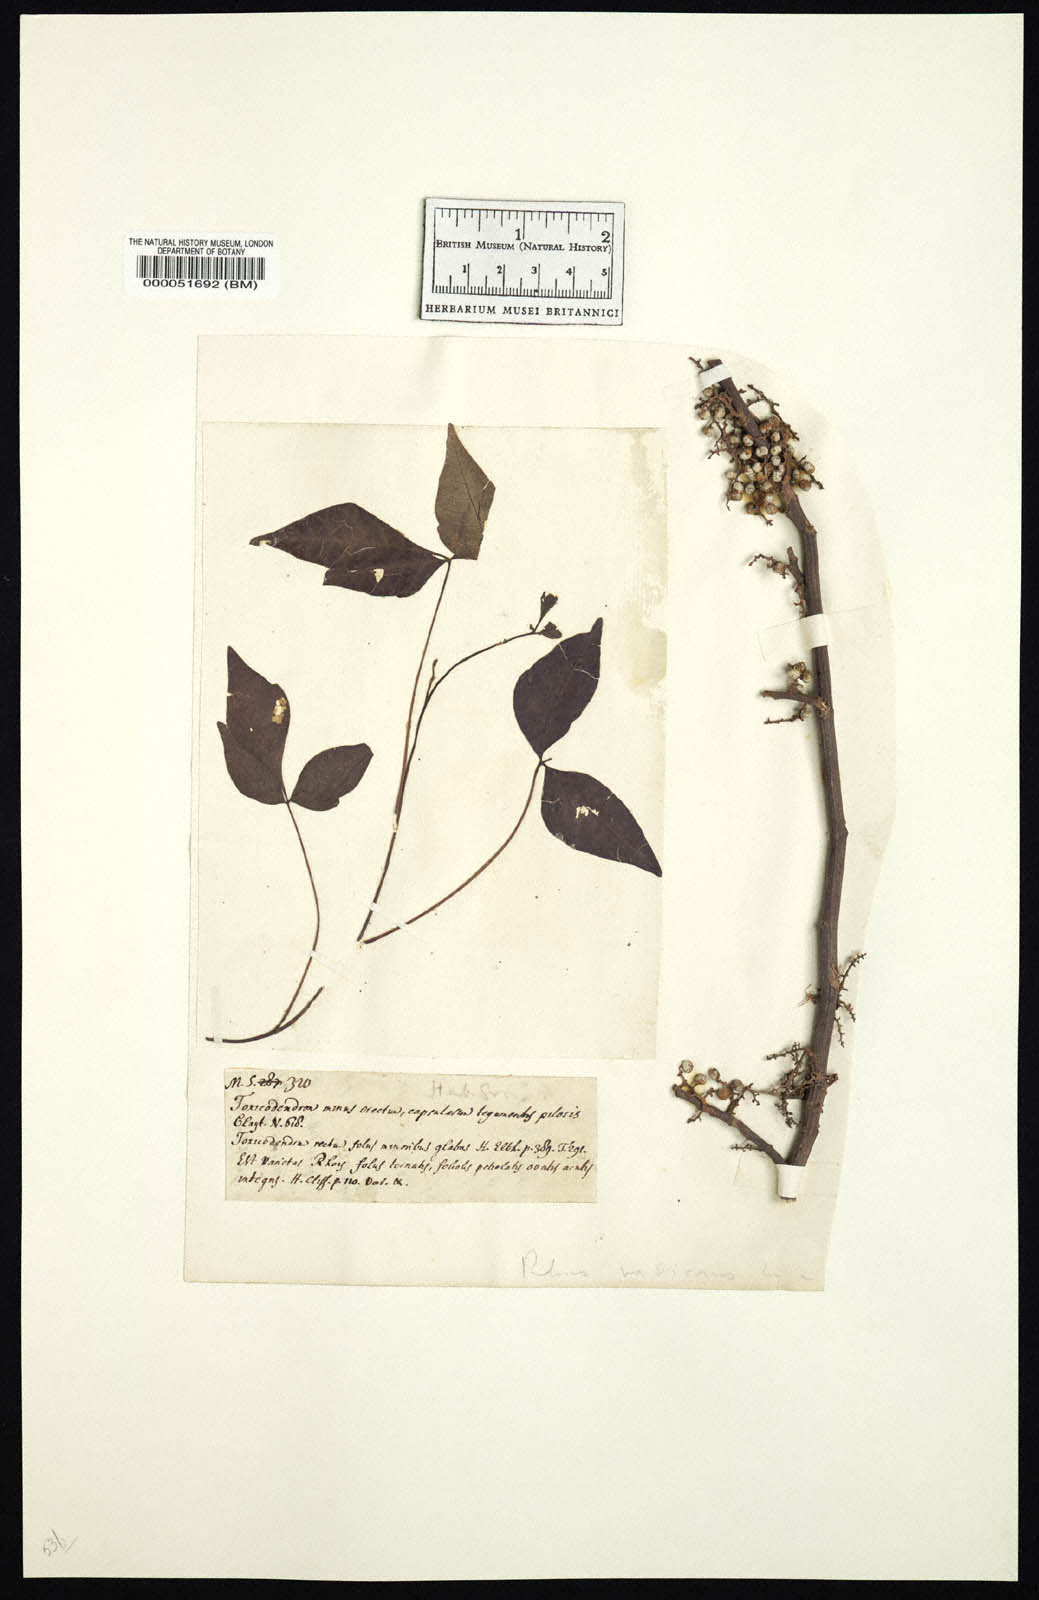 THE NATURAL HISTORY MUSEUM, LONDON
DEPARTMENT OF BOTANY
000051692 (BM)
1 2
BRITISH MUSEUM (NATURAL HISTORY)
1 2 3 4 5
HERBARIUM MUSEI BRITANNICI
M. S. 287 320
Toxicodendron minus erectum, capsularum tegumentis pilosis
Clayt. N. 618.
Toxicodendron rectum foliis minoribus glabris H. Elth. p. 389. T. 291.
Est varietas Rhois foliis ternatis, foliolis petiolatis ovatis acutis
integris. H. Cliff. p. 110. var. α.
Rhus radicans
536